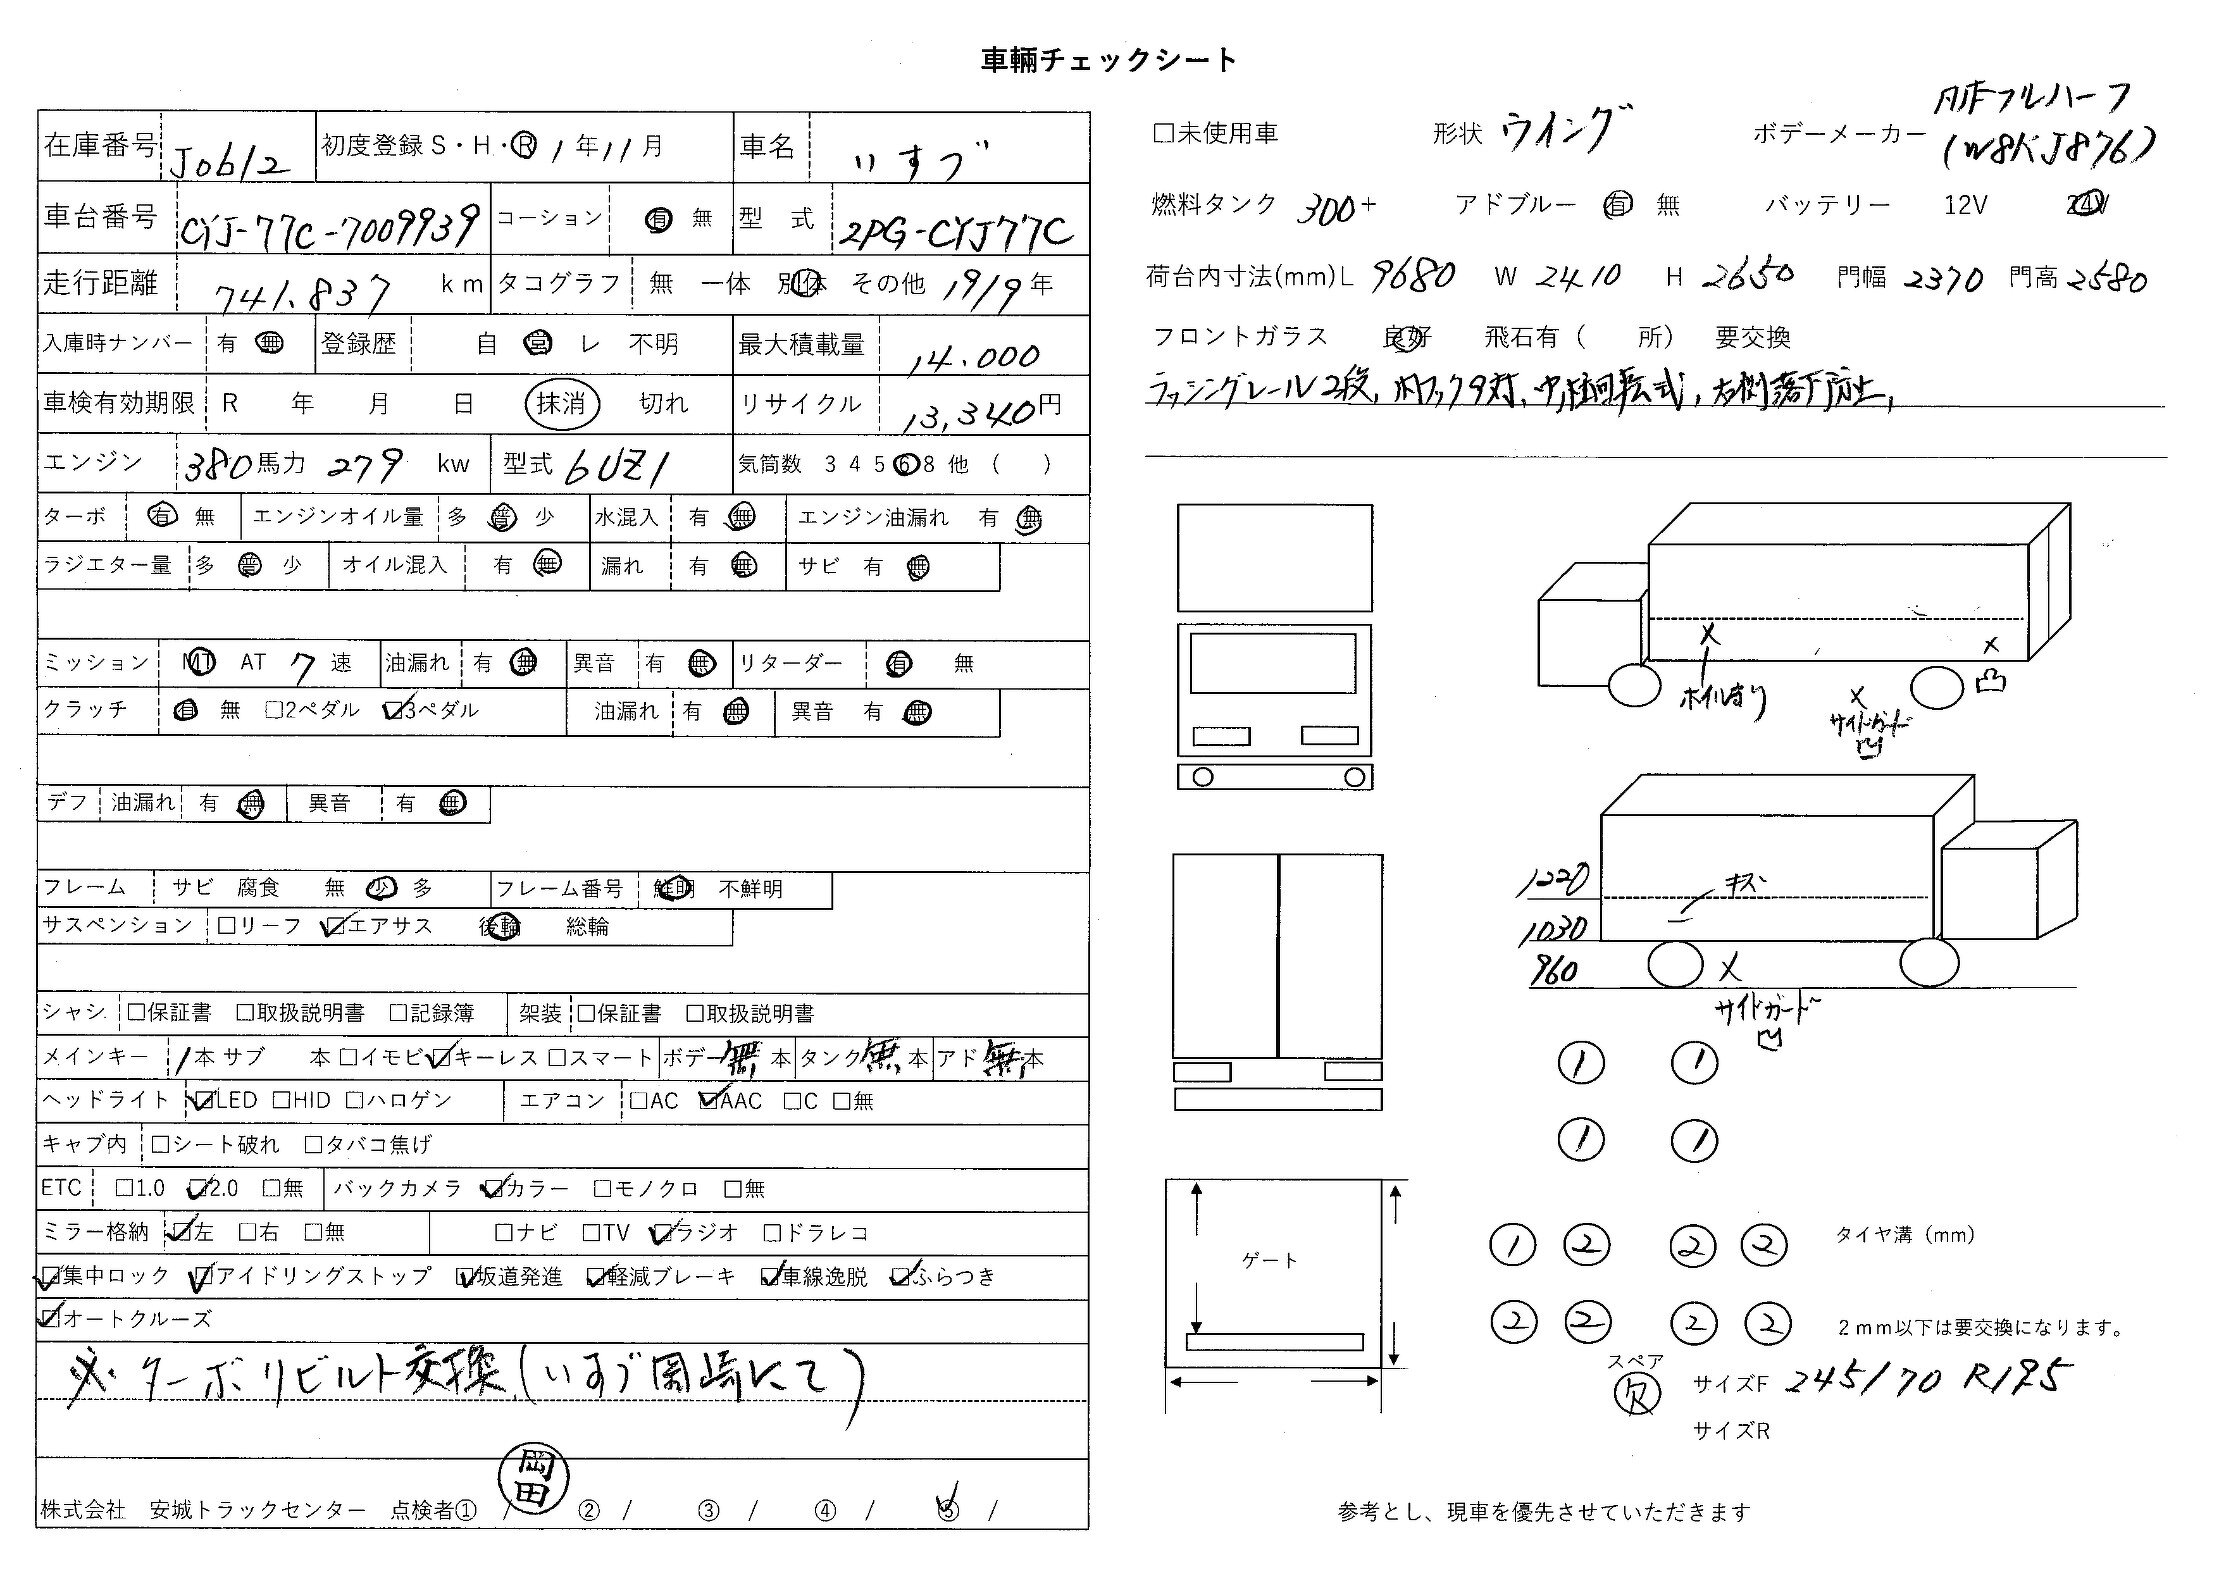 車輛チェックシート
在庫番号 J0612 初度登録 S・H・R 1年11月 車名 いすゞ
車台番号 CYJ-77C-7009939 コーション 有 無 型 式 2PG-CYJ77C
走行距離 741.837 km タコグラフ 無 一体 別体 その他 1919年
入庫時ナンバー 有 無 登録歴 自 営 レ 不明 最大積載量 14.000
車検有効期限 R 年 月 日 抹消 切れ リサイクル 13,340円
エンジン 380馬力 279 kw 型式 6UZ1 気筒数 3 4 5 6 8 他 ( )
ターボ 有 無 エンジンオイル量 多 普 少 水混入 有 無 エンジン油漏れ 有 無
ラジエター量 多 普 少 オイル混入 有 無 漏れ 有 無 サビ 有 無
ミッション MT AT 7 速 油漏れ 有 無 異音 有 無 リターダー 有 無
クラッチ 有 無 □2ペダル ☑3ペダル 油漏れ 有 無 異音 有 無
デフ 油漏れ 有 無 異音 有 無
フレーム サビ 腐食 無 少 多 フレーム番号 鮮明 不鮮明
サスペンション □リーフ ☑エアサス 後輪 総輪
シャシ □保証書 □取扱説明書 □記録簿 架装 □保証書 □取扱説明書
メインキー 1本 サブ 本 □イモビ ☑キーレス □スマート ボデー無本 タンク無本 アド無本
ヘッドライト ☑LED □HID □ハロゲン エアコン □AC ☑AAC □C □無
キャブ内 □シート破れ □タバコ焦げ
ETC □1.0 ☑2.0 □無 バックカメラ ☑カラー □モノクロ □無
ミラー格納 ☑左 □右 □無 □ナビ □TV ☑ラジオ □ドラレコ
☑集中ロック ☑アイドリングストップ ☑坂道発進 ☑軽減ブレーキ ☑車線逸脱 ☑ふらつき
☑オートクルーズ
※ターボリビルト交換(いすゞ岡崎にて)
岡田
株式会社 安城トラックセンター 点検者① / ② / ③ / ④ / ⑤ /
□未使用車 形状 ウイング ボデーメーカー
フルハーフ
(W8KJ876)
燃料タンク 300+ アドブルー 有 無 バッテリー 12V 24V
荷台内寸法(mm)L 9680 W 2410 H 2650 門幅 2370 門高 2580
フロントガラス 良好 飛石有( 所) 要交換
ラッシングレール2段, 内フック9対, 中柱回転式, 右側落下防止,
X
X
ホイル有り
X
凸
サイドガード
凹
1220
キズ
1030
960
X
サイドガード
凹
① ①
① ①
① ② ② ② タイヤ溝(mm)
② ② ② ② 2mm以下は要交換になります。
ゲート
スペア
欠
サイズF 245/70 R19.5
サイズR
参考とし、現車を優先させていただきます